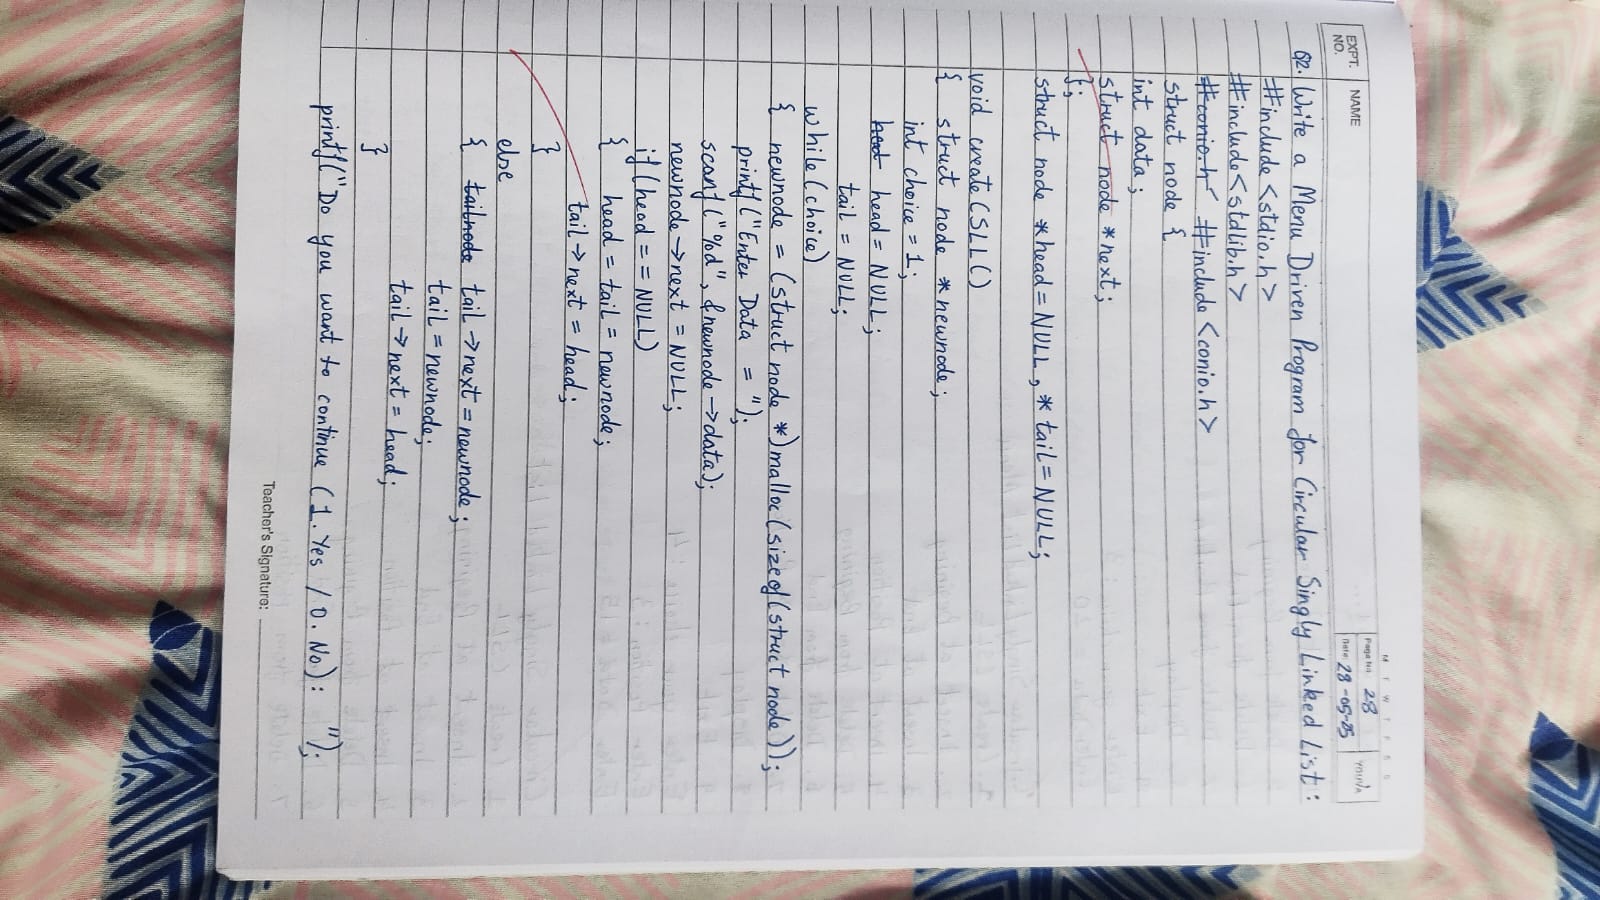 M T W T F S S
EXPT. NO. NAME
Page No. 28
Date: 28-05-25
YOUVA
Q2. Write a Menu Driven Program for Circular Singly Linked List:
#include <stdio.h>
#include<stdlib.h>
#conio.h #include <conio.h>
struct node {
int data;
struct node *next;
};
struct node *head = NULL, * tail = NULL;
void create CSLL()
{ struct node * newnode;
int choice = 1;
head = NULL;
tail = NULL;
while(choice)
{ newnode = (struct node *)malloc(sizeof(struct node));
printf("Enter Data = ");
scanf("%d", &newnode->data);
newnode->next = NULL;
if(head == NULL)
{ head = tail = newnode;
tail->next = head;
}
else
{ tailnode tail->next = newnode;
tail = newnode;
tail->next = head;
}
printf("Do you want to continue (1. Yes / 0. No): ");
Teacher's Signature: